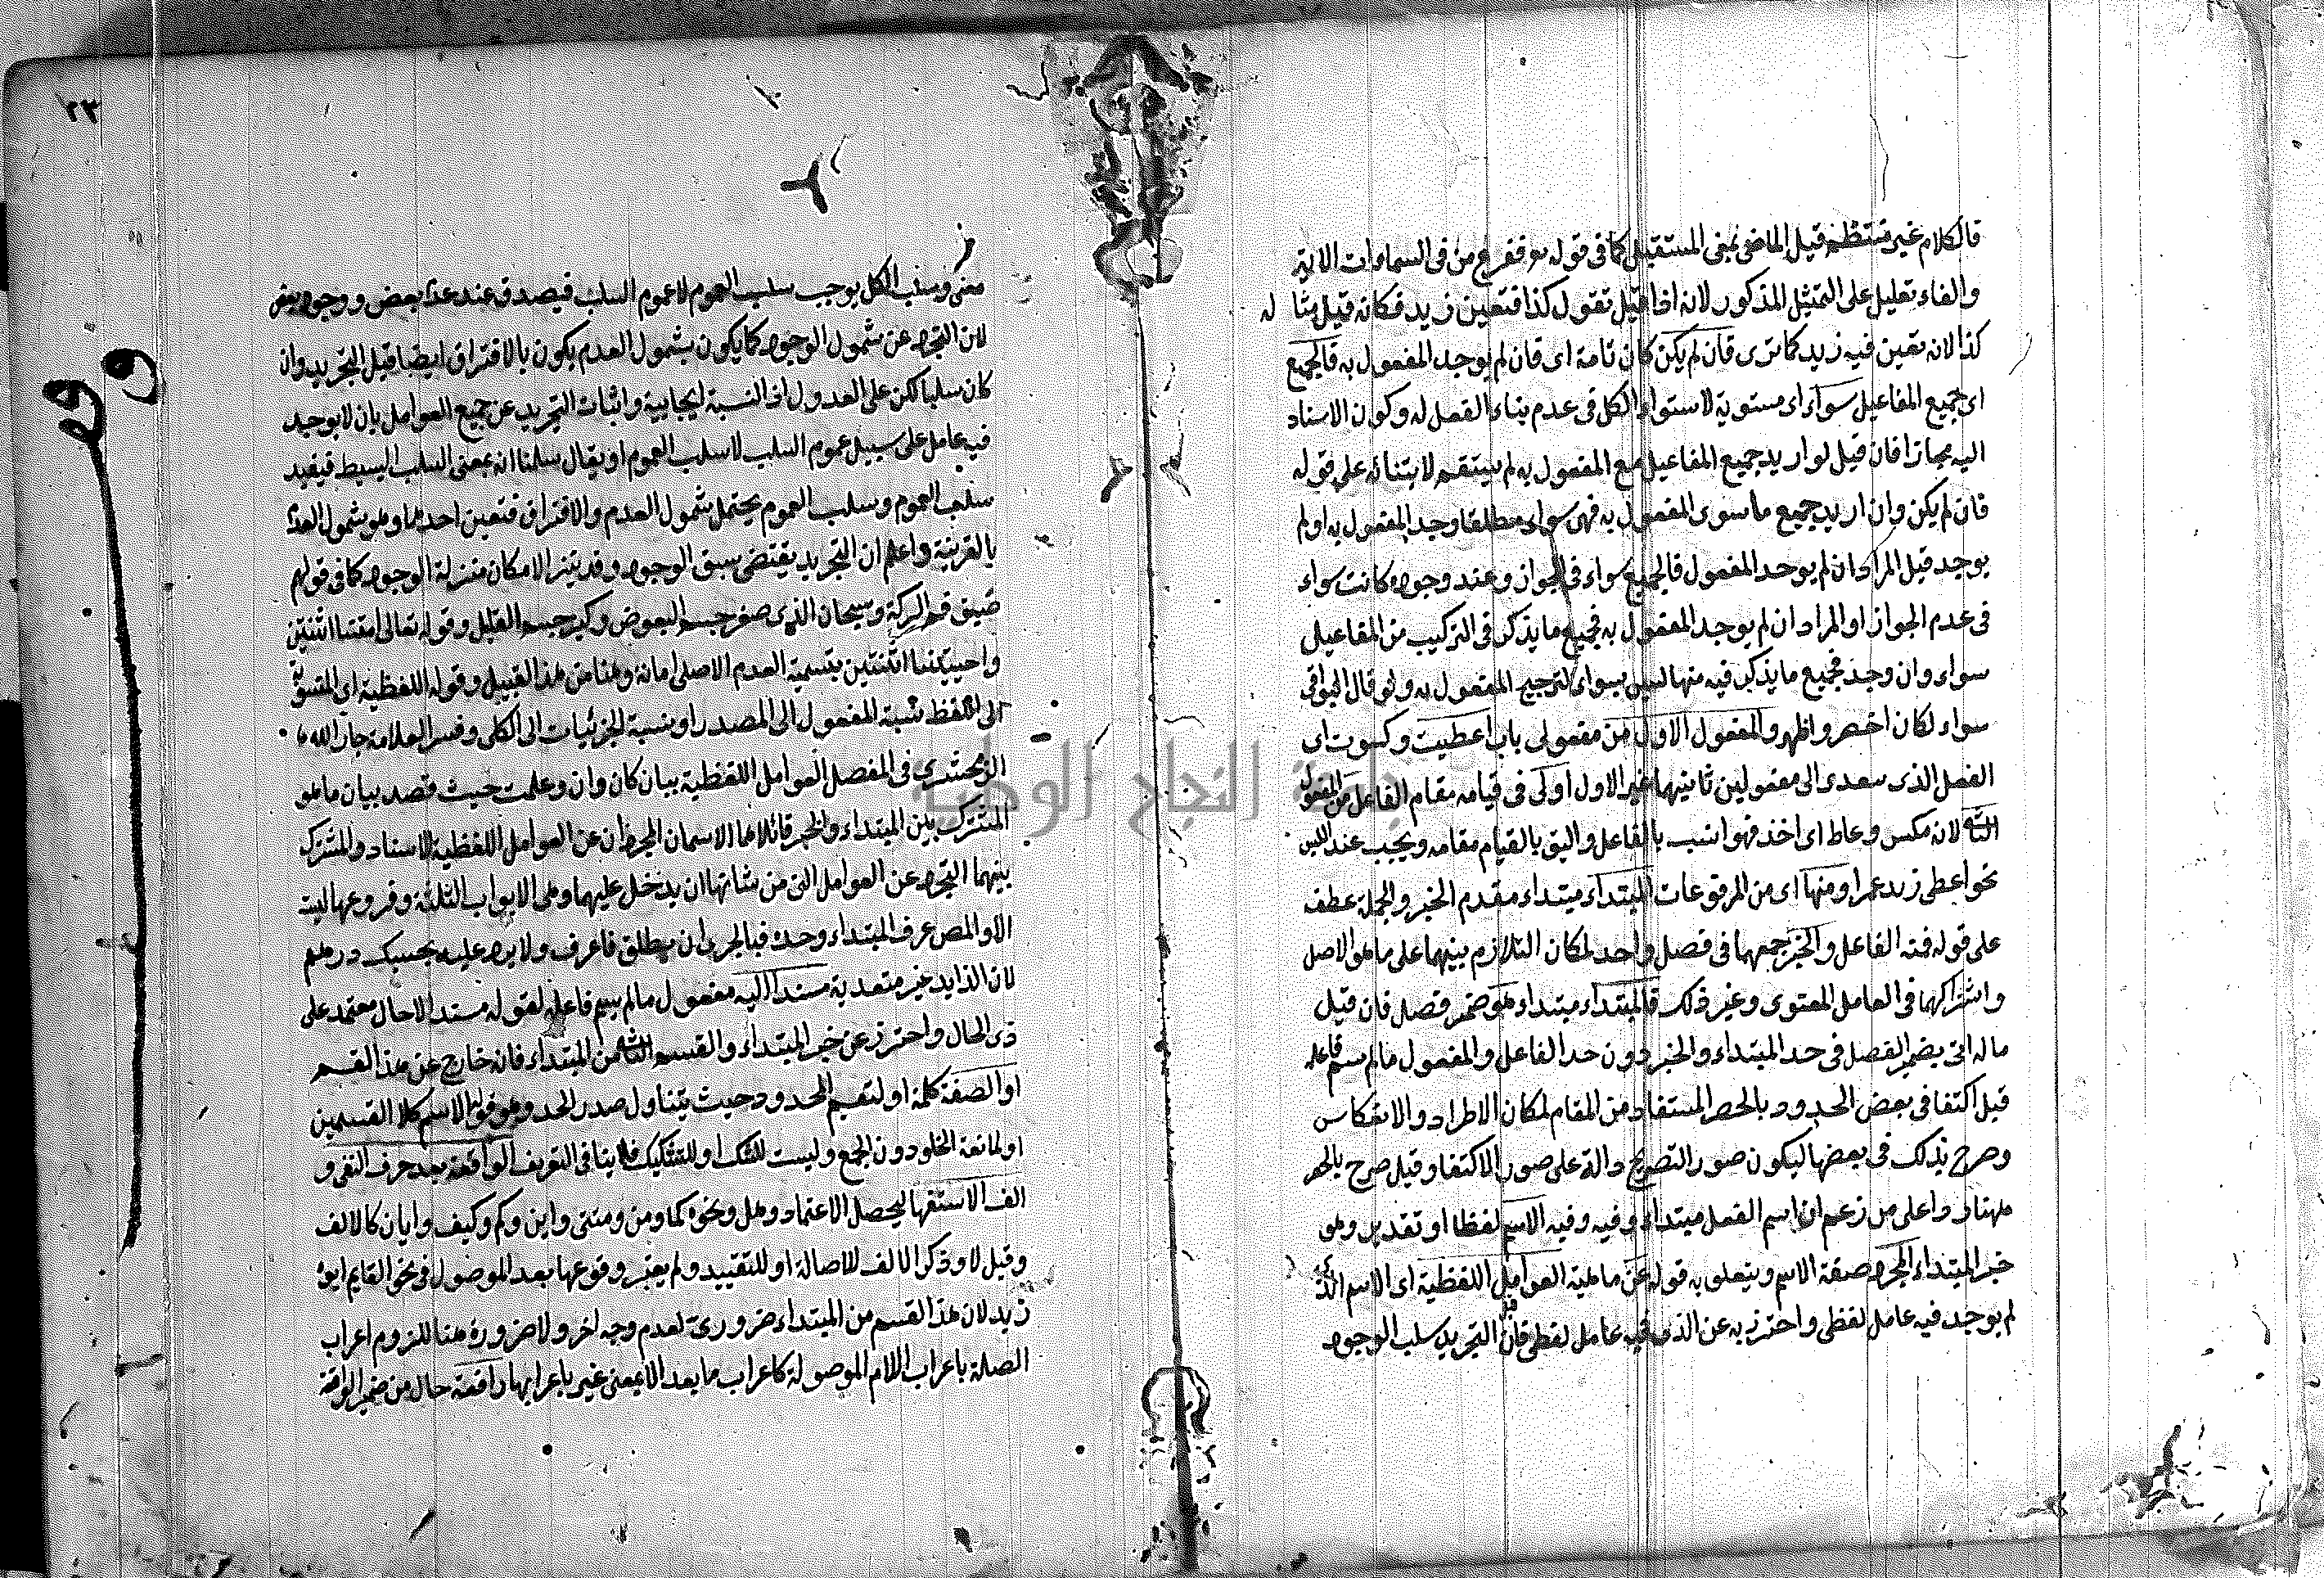 فالكلام غير منتظم قيل الماضى بمعنى المستقبل كما فى قوله تع ففزع من فى السماوات الاية
والفاء تعليل على التمثيل المذكور لانه اذا قيل تقول كذا فتعين زيد فكانه قيل مثاله
كذا لانه تعين فيه زيد كما ترى فان لم يكن كان تامة اى فان لم يوجد المفعول به فالجميع
اى جميع المفاعيل سواء اى مستوية لاستواء الكل فى عدم بناء الفعل له وكون الاسناد
اليه مجازا فان قيل لو اريد جميع المفاعيل مع المفعول به لم يستقم لابتنائه على قوله
فان لم يكن وان اريد جميع ما سوى المفعول به فهى سواء مطلقا وجد المفعول به او لم
يوجد قيل المراد ان لم يوجد المفعول فالجميع سواء فى الجواز وعند وجوده كانت سواء
فى عدم الجواز او المراد ان لم يوجد المفعول به فجميع ما يذكر فى التركيب من المفاعيل
سواء وان وجد فجميع ما يذكر فيه منها ليس بسواء لترجيح المفعول به ولو قال البواقى
سواء لكان اخصر واظهر والمفعول الاول من مفعولى باب اعطيت وكسوت اى
الفعل الذى تعدى الى مفعولين ثانيهما غير الاول اولى فى قيامه مقام الفاعل من المفعول
الثانى لانه مكتس وعاط اى اخذ فهو انسب بالفاعل واليق بالقيام مقامه ويجب عند اللبس
نحو اعطى زيد عمرا ومنها اى من المرفوعات المبتداء مبتداء مقدم الخبر والجملة عطف
على قوله فمنه الفاعل والخبر جمعهما فى فصل واحد لمكان التلازم بينهما على ما هو الاصل
واشتراكهما فى العامل المعنوى وغير ذلك فالمبتداء مبتداء هو ضمير فصل فان قيل
ما له اتى بضمير الفصل فى حد المبتداء والخبر دون حد الفاعل والمفعول ما لم يسم فاعله
قيل اكتفا فى بعض الحدود بالحصر المستفاد من المقام لمكان الاطراد والانعكاس
وصرح بذلك فى بعضها ليكون صور التصريح دالة على صور الاكتفا وقيل صرح بالحصر
ههنا ردا على من زعم ان اسم الفعل مبتداء وفيه وفيه الاسم لفظا او تقديرا وهو
خبر المبتداء المجرد صفة الاسم ويتعلق به قوله عن ماهية العوامل اللفظية اى الاسم الذى
لم يوجد فيه عامل لفظى واحترز به عن الذى فيه عامل لفظى فان قيل التجريد سلب الوجود
٢٣
معنى وسلب الكل يوجب سلب العموم لا عموم السلب فيصدق عند عدم بعض ووجود بعض
لان التجرد عن شمول الوجود كما يكون بشمول العدم يكون بالافتراق ايضا قيل التجريد وان
كان سلبا لكن على العدول اذ النسبة ايجابية واثبات التجريد عن جميع العوامل بان لا يوجد
فيه عامل على سبيل عموم السلب لا سلب العموم او يقال سلمنا انه بمعنى السلب البسيط فيفيد
سلب العموم وسلب العموم يحتمل شمول العدم والافتراق فتعين احدهما وهو شمول العدم
بالقرينة واعلم ان التجريد يقتضى سبق الوجود وقد ينزل الامكان منزلة الوجود كما فى قولهم
ضيق فم الركية وسبحان الذى صغر جسم البعوض وكبر جسم الفيل وقوله تعالى امتنا اثنتين
واحييتنا اثنتين بتسمية العدم الاصلى اماتة وهنا من هذا القبيل وقوله اللفظية اى المنسوبة
الى اللفظ نسبة المفعول الى المصدر او نسبة الجزئيات الى الكلى وفسر العلامة جار الله
الزمخشرى فى المفصل العوامل اللفظية ببيان كان وان وعلمت حيث قصد بيان ما هو
المشترك بين المبتداء والخبر قائلا هما الاسمان المجردان عن العوامل اللفظية للاسناد والمشترك
بينهما التجرد عن العوامل التى من شانها ان يدخل عليهما وهى الابواب الثلثة وفروعها ليت
الا والمص عرف المبتداء وحده فبالحرى ان يطلق فاعرف ولا يرد عليه بحسبك درهم
لان الزايد غير متعدية مسندا اليه مفعول ما لم يسم فاعله لقوله مسند الاحال معتمد على
ذى الحال واحترز عن خبر المبتداء والقسم الثانى من المبتداء فانه خارج عن هذا القسم
او الصفة كلمة او لتقسيم المحدود حيث يتناول صدر الحد وهو قوله الاسم كلا القسمين
او لمانعة الخلو دون الجمع وليست للشك او للتشكيك فلا ينافى التعريف الواقعة بعد حرف النفى و
الف الاستفهام ليحصل الاعتماد وهل ونحوه كما ومن ومتى واين وكم وكيف وايان كالالف
وقيل لا وذكر الالف للاصالة او للتقييد ولم يعتبر وقوعها بعد الموصول فى نحو القايم ابوه
زيد لان هذا القسم من المبتداء ضرورى لعدم وجه اخر ولا ضرورة هنا للزوم اعراب
الصلة باعراب اللام الموصولة كاعراب ما بعد الا بمعنى غير باعرابها رافعة حال من ضمير الواقعة
وقف